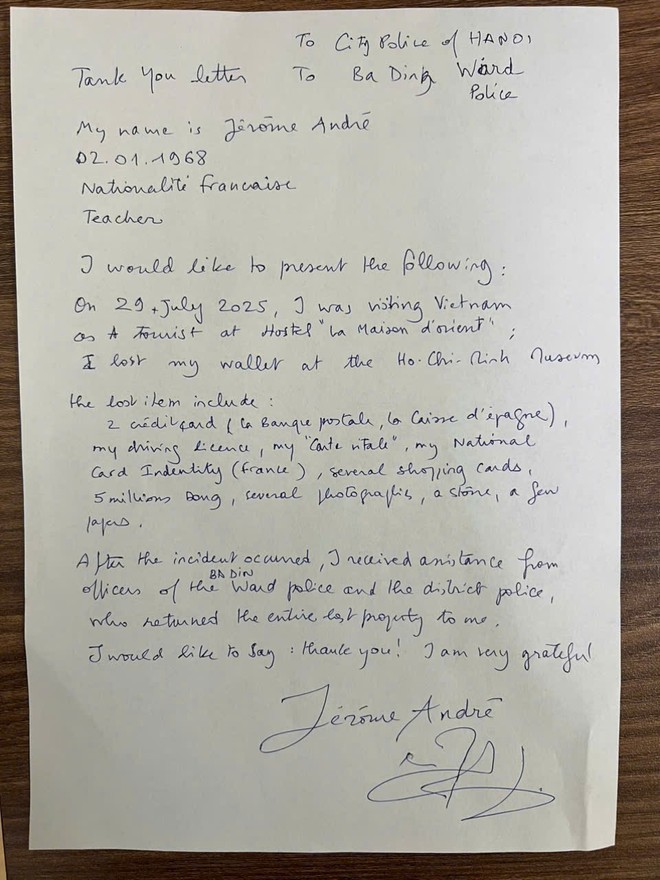 To City Police of HANOI
Tank You letter To Ba Ding Ward
Police
My name is Jérôme André
02.01.1968
Nationalité francaise
Teacher
I would like to present the following :
On 29, July 2025, I was visiting Vietnam
as A tourist at Hostel "La Maison d'orient" ;
I lost my wallet at the Ho-Chi-Minh Museum
the lost item include :
2 crédit card (La Banque postale, la Caisse d'épagne),
my driving licence, my "Carte vitale", my National
Card Indentity (france), several shopping cards,
5 millions Dong, several photographies, a stone, a few
papers.
After the incident occurred, I received assistance from
BA DIN
officers of the Ward police and the district police,
who returned the entire lost property to me.
I would like to say : thank you! I am very grateful
Jérôme André